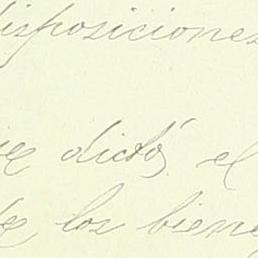 disposiciones
que dictó el
de los bienes